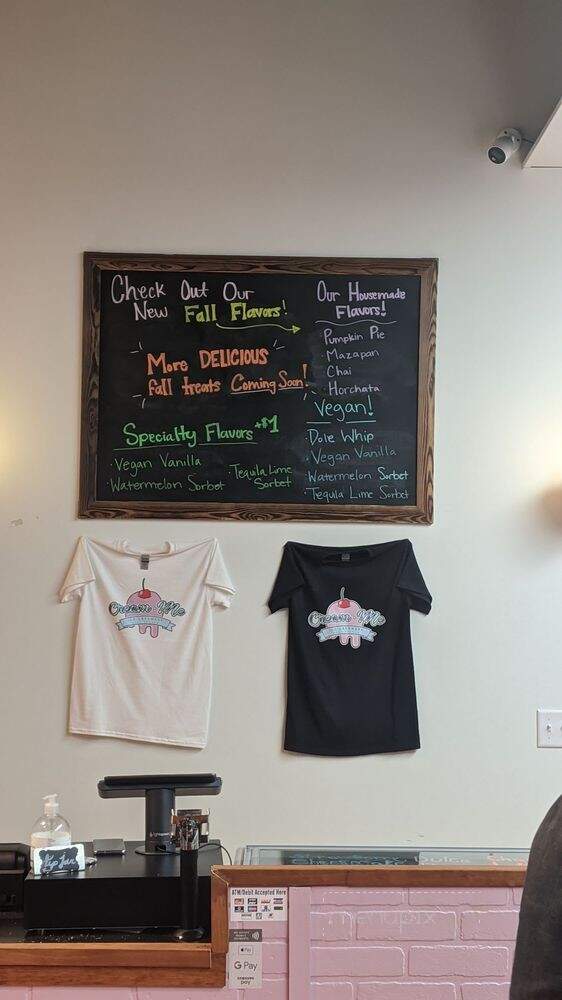 Check Out Our
New Fall Flavors!
More DELICIOUS
fall treats Coming Soon!
Specialty Flavors +$1
· Vegan Vanilla
· Watermelon Sorbet
Tequila Lime
Sorbet
Our Housemade
Flavors!
· Pumpkin Pie
· Mazapan
· Chai
· Horchata
Vegan!
· Dole Whip
· Vegan Vanilla
· Watermelon Sorbet
· Tequila Lime Sorbet
Cream Me
Cream Me
Tip Jar
ATM/Debit Accepted Here
Pay
G Pay